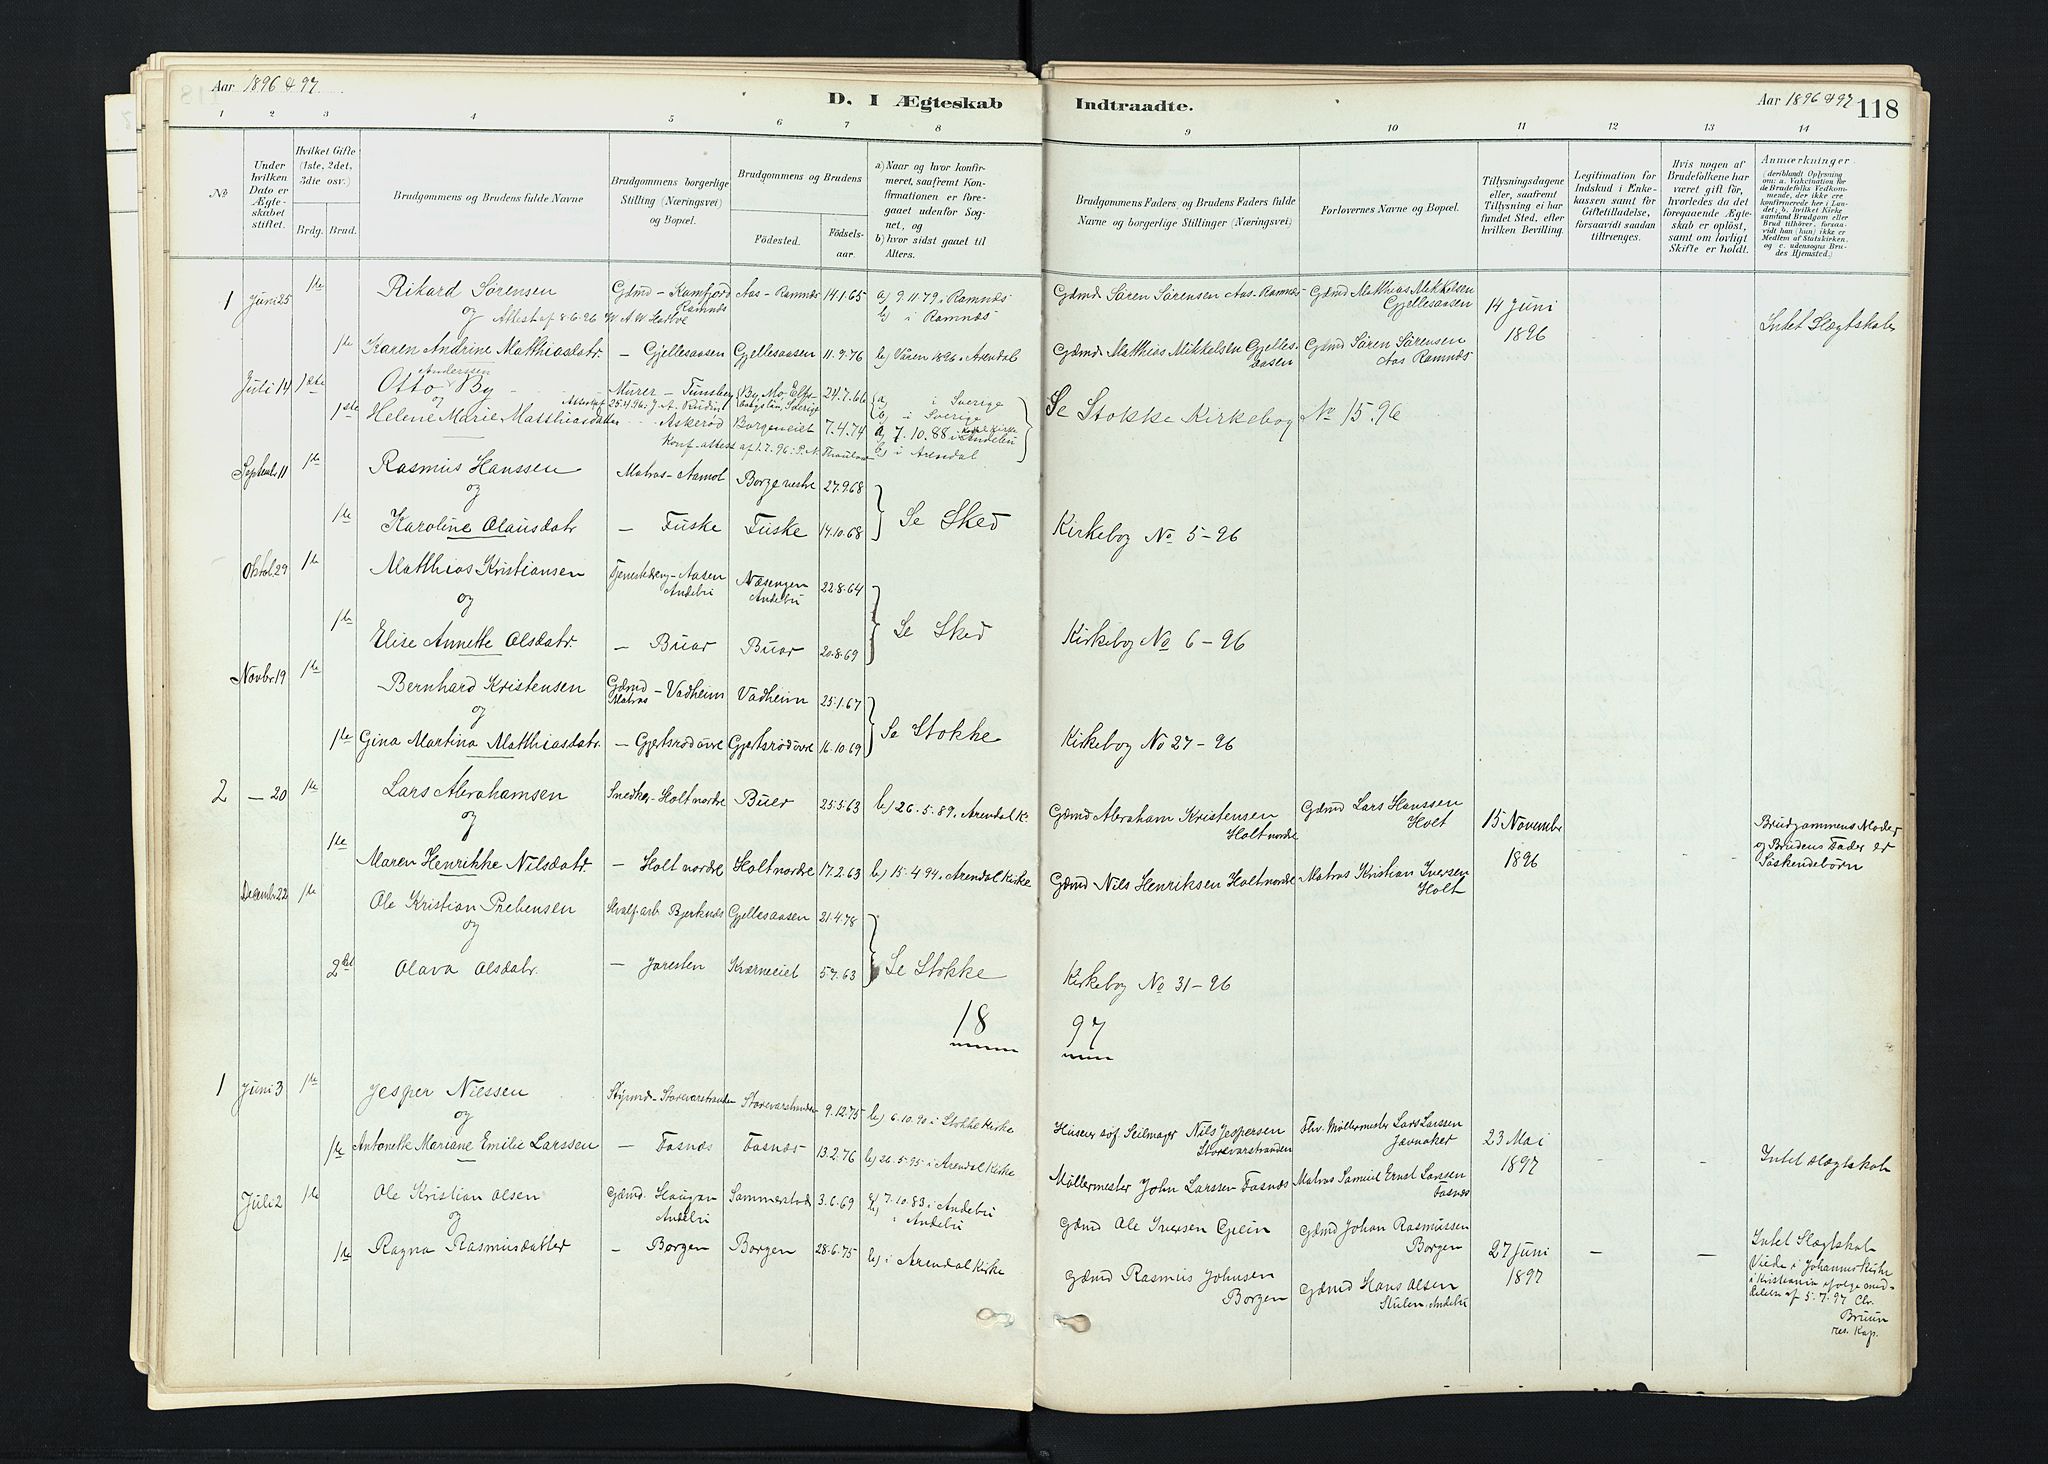 Aar 1896 & 97.
D. I Ægteskab Indtraadte.
Aar 1896 & 97 118
1 2 3 4 5 6 7 8 9 10 11 12 13 14
No
Under hvilken Dato er Ægteskabet stiftet.
Hvilket Gifte (1ste, 2det, 3die osv.)
Brdg. Brud.
Brudgommens og Brudens fulde Navne
Brudgommens borgerlige Stilling (Næringsvei) og Bopæl.
Brudgommens og Brudens
Fødested. Fødselsaar.
a) Naar og hvor konfirmeret, saafremt Konfirmationen er foregaaet udenfor Sognet, og
b) hvor sidst gaaet til Alters.
Brudgommens Faders og Brudens Faders fulde Navne og borgerlige Stillinger (Næringsvei)
Forlovernes Navne og Bopæl.
Tillysningsdagene eller, saafremt Tillysning ei har fundet Sted, efter hvilken Bevilling.
Legitimation for Indskud i Enkekassen samt for Giftetilladelse, forsaavidt saadan tiltrænges.
Hvis nogen af Brudefolkene har været gift før, hvorledes da det foregaaende Ægteskab er opløst, samt om lovligt Skifte er holdt.
Anmærkninger (deriblandt Oplysning om: a. Vakcination for de Brudefolks Vedkommende, der ikke ere konfirmerede her i Landet; b. hvilket Kirkesamfund Brudgom eller Brud tilhører, forsaavidt han (hun) ikke er Medlem af Statskirken, og c. udensogns Brudes Hjemsted.)
1 Juni 25 1ste Rikard Sørensen Gdmd - Kamfjord Ramnæs Aas - Ramnæs 14.1.65 a) 9.11.79 i Ramnæs b) i Ramnæs Gdmd Søren Sørensen Aas - Ramnæs Gdmd Matthias Mikkelsen Gjellesaasen 14 Juni 1896 Intet Slægtskab
og Attest af 8.6.96
1ste Karen Andrine Matthiasdatr. - Gjellesaasen Gjellesaasen 11.9.76 b) Vaaren 1896 i Arendal Gdmd Matthias Mikkelsen Gjellesaasen Gdmd Søren Sørensen Aas Ramnæs
Juli 14 1ste Otto Anderssen By Murer - Tunsberg 24.7.66 a, i Sverige b, i Sverige Se Stokke Kirkebog No 15.96
og
1ste Helene Marie Matthiasdatter - Askerød Borgeneiet 7.4.74 a, 7.10.88 i Andebu b) i Arendal
Septembr 11 1ste Rasmus Hanssen Matros - Aamot Borge vestre 27.9.68
og Se Sked Kirkebog No 5-96
1ste Karoline Olausdatr - Fuske Fuske 14.10.68
Oktob. 29 1ste Matthias Kristiansen Aasen Andebu Næsengen Andebu 22.8.64
og Se Sked Kirkebog No 6-96
1ste Elise Annette Olsdatr. - Buar Buar 20.8.69
Novbr. 19 1ste Bernhard Kristensen Gdmd Matros - Vadheim Vadheim 25.1.67
og Se Stokke Kirkebog No 27-96
1ste Gina Martina Matthiasdatr. - Gjertsrød øvre Gjertsrød øvre 16.10.69
2 - 20 1ste Lars Abrahamsen Snedker - Holt nordre Buer 25.5.63 b) 26.5.89 i Arendal K. Gdmd Abraham Kristensen Holt nordre Gdmd Lars Hanssen Holt 15 November 1896 Brudgommens Moder og Brudens Fader er Søskendebørn
og
1ste Maren Henrikke Nilsdatr. - Holt nordre Holt nordre 17.2.63 b) 15.4.94 i Arendal Kirke Gdmd Nils Henriksen Holt nordre Matros Kristian Iversen Holt
Decembr 22 1ste Ole Kristian Prebensen Hvalf.arb Bjerknæs Gjellesaasen 21.4.78
og Se Stokke Kirkebog No 31-96
2det Olava Olsdatr. - Jaresten Kværneeiet 5.7.63
18 97
1 Juni 3 1ste Jesper Nilssen Styrmd - Storevarstranden Storevarstranden 9.12.75 b) 6.10.90 i Stokke Kirke Huseier og Seilmager Nils Jespersen Storevarstranden Fhv. Møllermester Lars Larssen Jævnaker 23 Mai 1897 - - Intet Slægtskab
og
1ste Antonette Mariane Emilie Larssen - Fosnæs Fosnæs 13.2.76 b) 26.5.95 i Arendal Kirke Møllermester John Larssen Fosnæs Matros Samuel Ernst Larssen Fosnæs
Juli 2 1ste Ole Kristian Olsen Gdmd. Haugan Andebu 3.6.69 a) 7.10.83 i Andebu b) i Andebu Gdmd Ole Iversen Gdmd Johan Rasmussen Borgen 27 Juni 1897 - - Intet Slægtskab
og
1ste Ragna Rasmusdatter - Borgen Borgen 28.6.75 b) i Arendal Kirke Gdmd Rasmus Johnsen Borgen Gdmd Hans Olsen Stulen Andebu
Viede i Johannes Kirke i Kristiania ifølge meddelelse af 5.7.97 Chr. Bruun res. Kap.